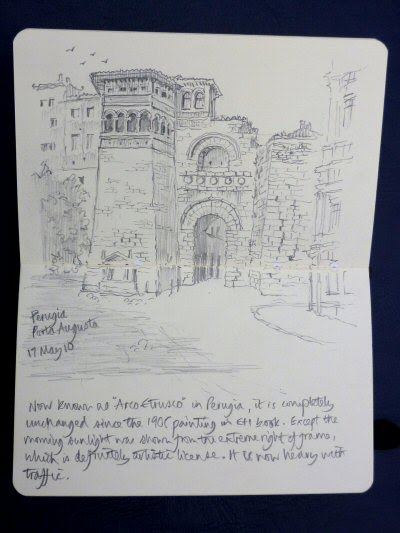 Perugia
Porta Augusta
17 May 10
Now known as "Arco Etrusco" in Perugia, it is completely
unchanged since the 190 painting in EH book. Except the
morning sunlight was shown from the extreme right of
which is definitely artistic license. It is now heavy with
traffic.